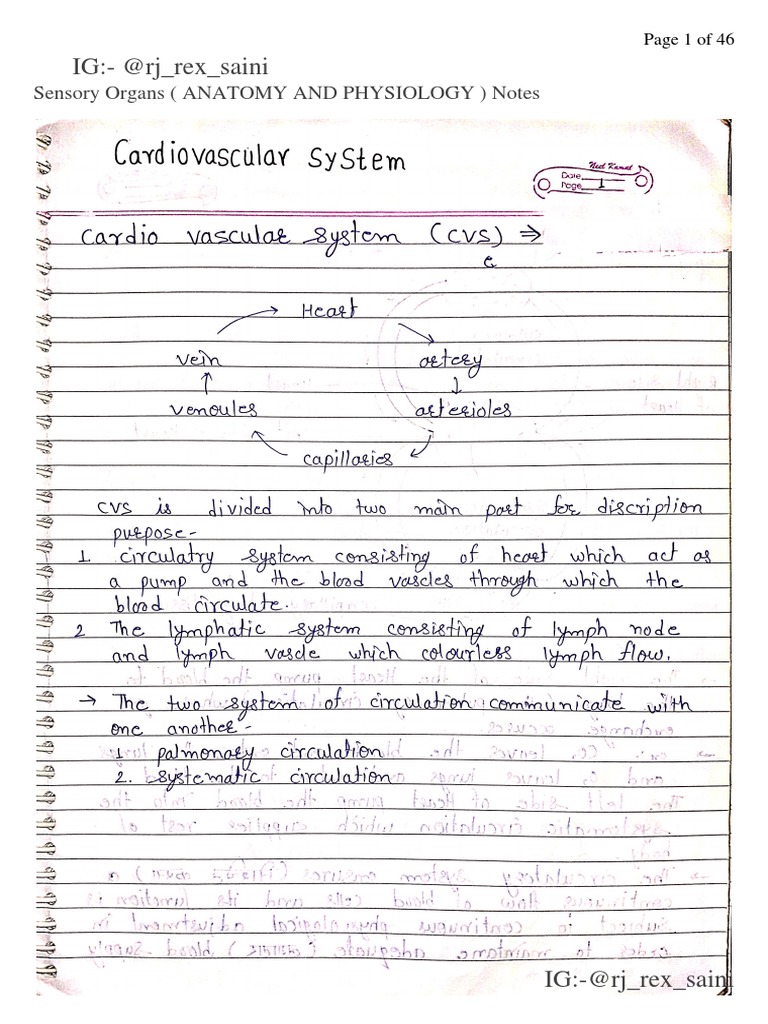 Page 1 of 46
IG:- @rj_rex_saini
Sensory Organs ( ANATOMY AND PHYSIOLOGY ) Notes
Cardiovascular System
Neel Kamal
Date
Page 1
Cardio vascular system (CVS) ⇒
e
Heart
vein artery
venoules arterioles
capillaries
CVS is divided into two main part for discription
purpose-
1. circulatry system consisting of heart which act as
a pump and the blood vascles through which the
blood circulate.
2 The lymphatic system consisting of lymph node
and lymph vascle which colourless lymph flow.
→ The two system of circulation communicate with
one another-
1. palmonary circulation
2. systematic circulation
IG:-@rj_rex_saini